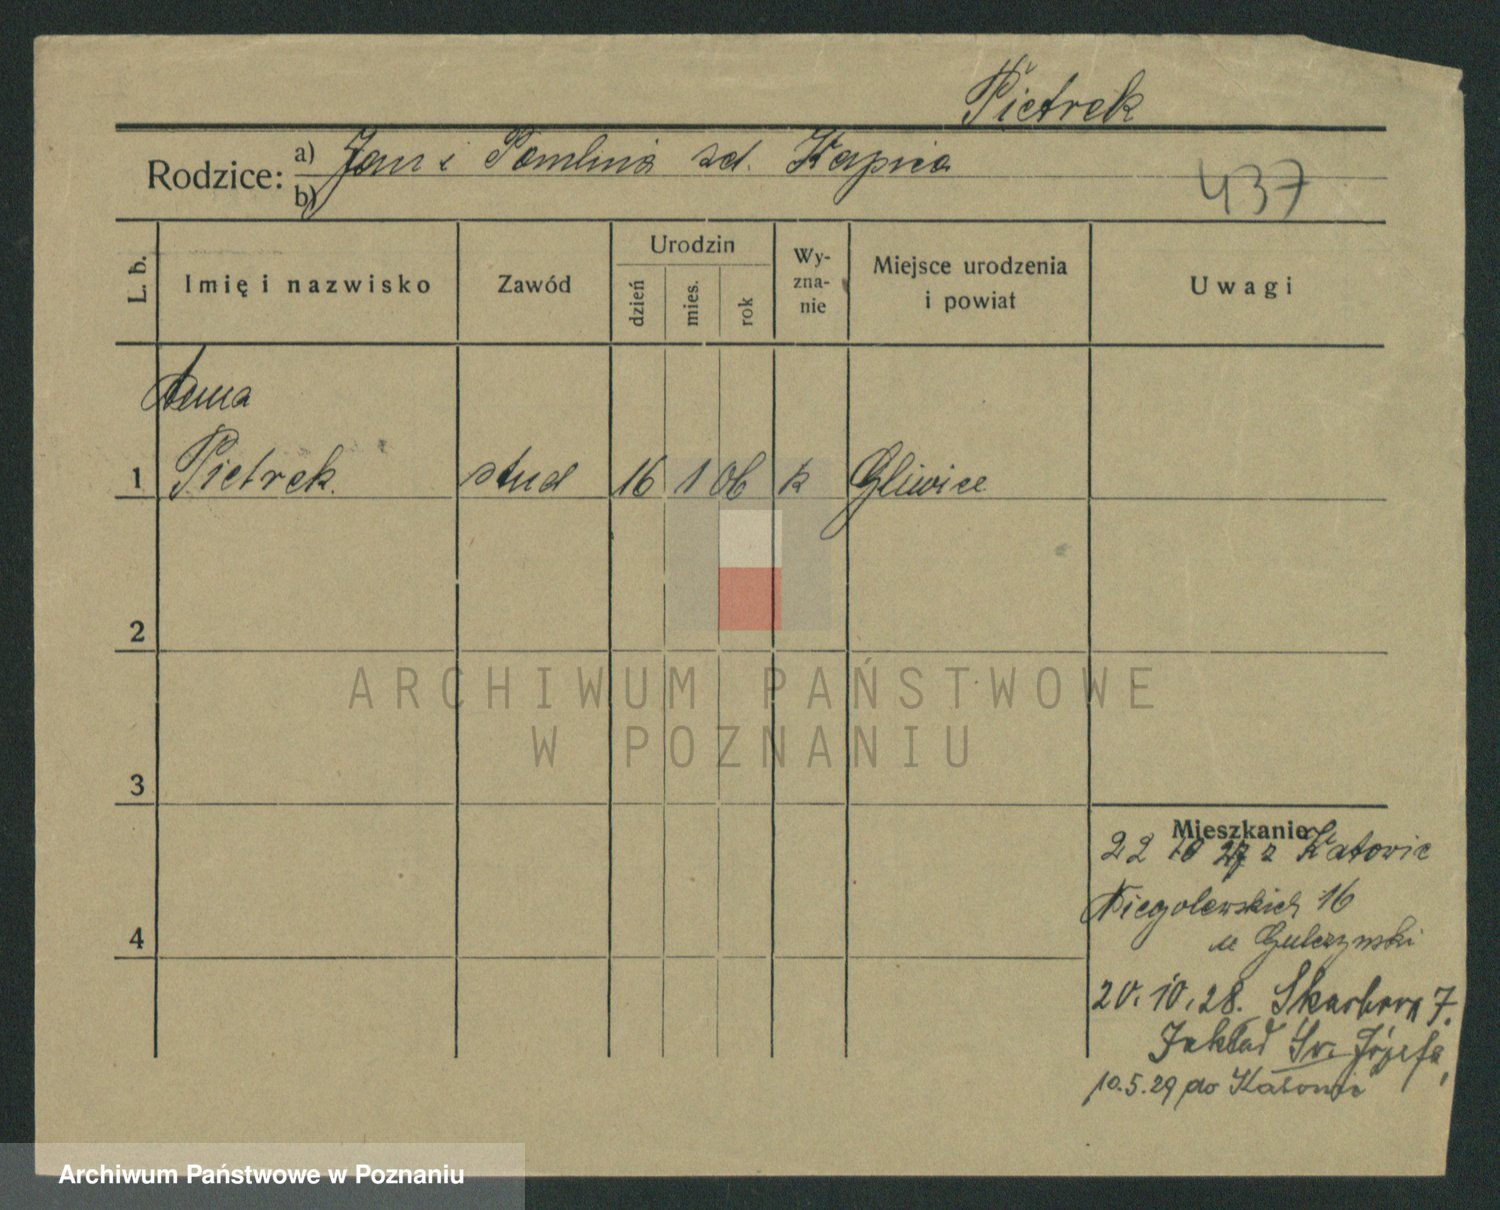 Pietrek
Rodzice: a) Jan i zd. Kapica
b)
437
L. b.
Imię i nazwisko
Zawód
Urodzin
dzień
mies.
rok
Wy-
zna-
nie
Miejsce urodzenia
i powiat
Uwagi
Anna
1 Pietrek stud 16 1 06 k Gliwice
2
3
4
ARCHIWUM PAŃSTWOWE
W POZNANIU
Mieszkanie
22 10 27 z Katowic
Niegolewskich 16
u Gulczynski
20. 10. 28. Skarbowa 7.
Zakład Św. Józefa,
10.5.29 do Katowic
Archiwum Państwowe w Poznaniu